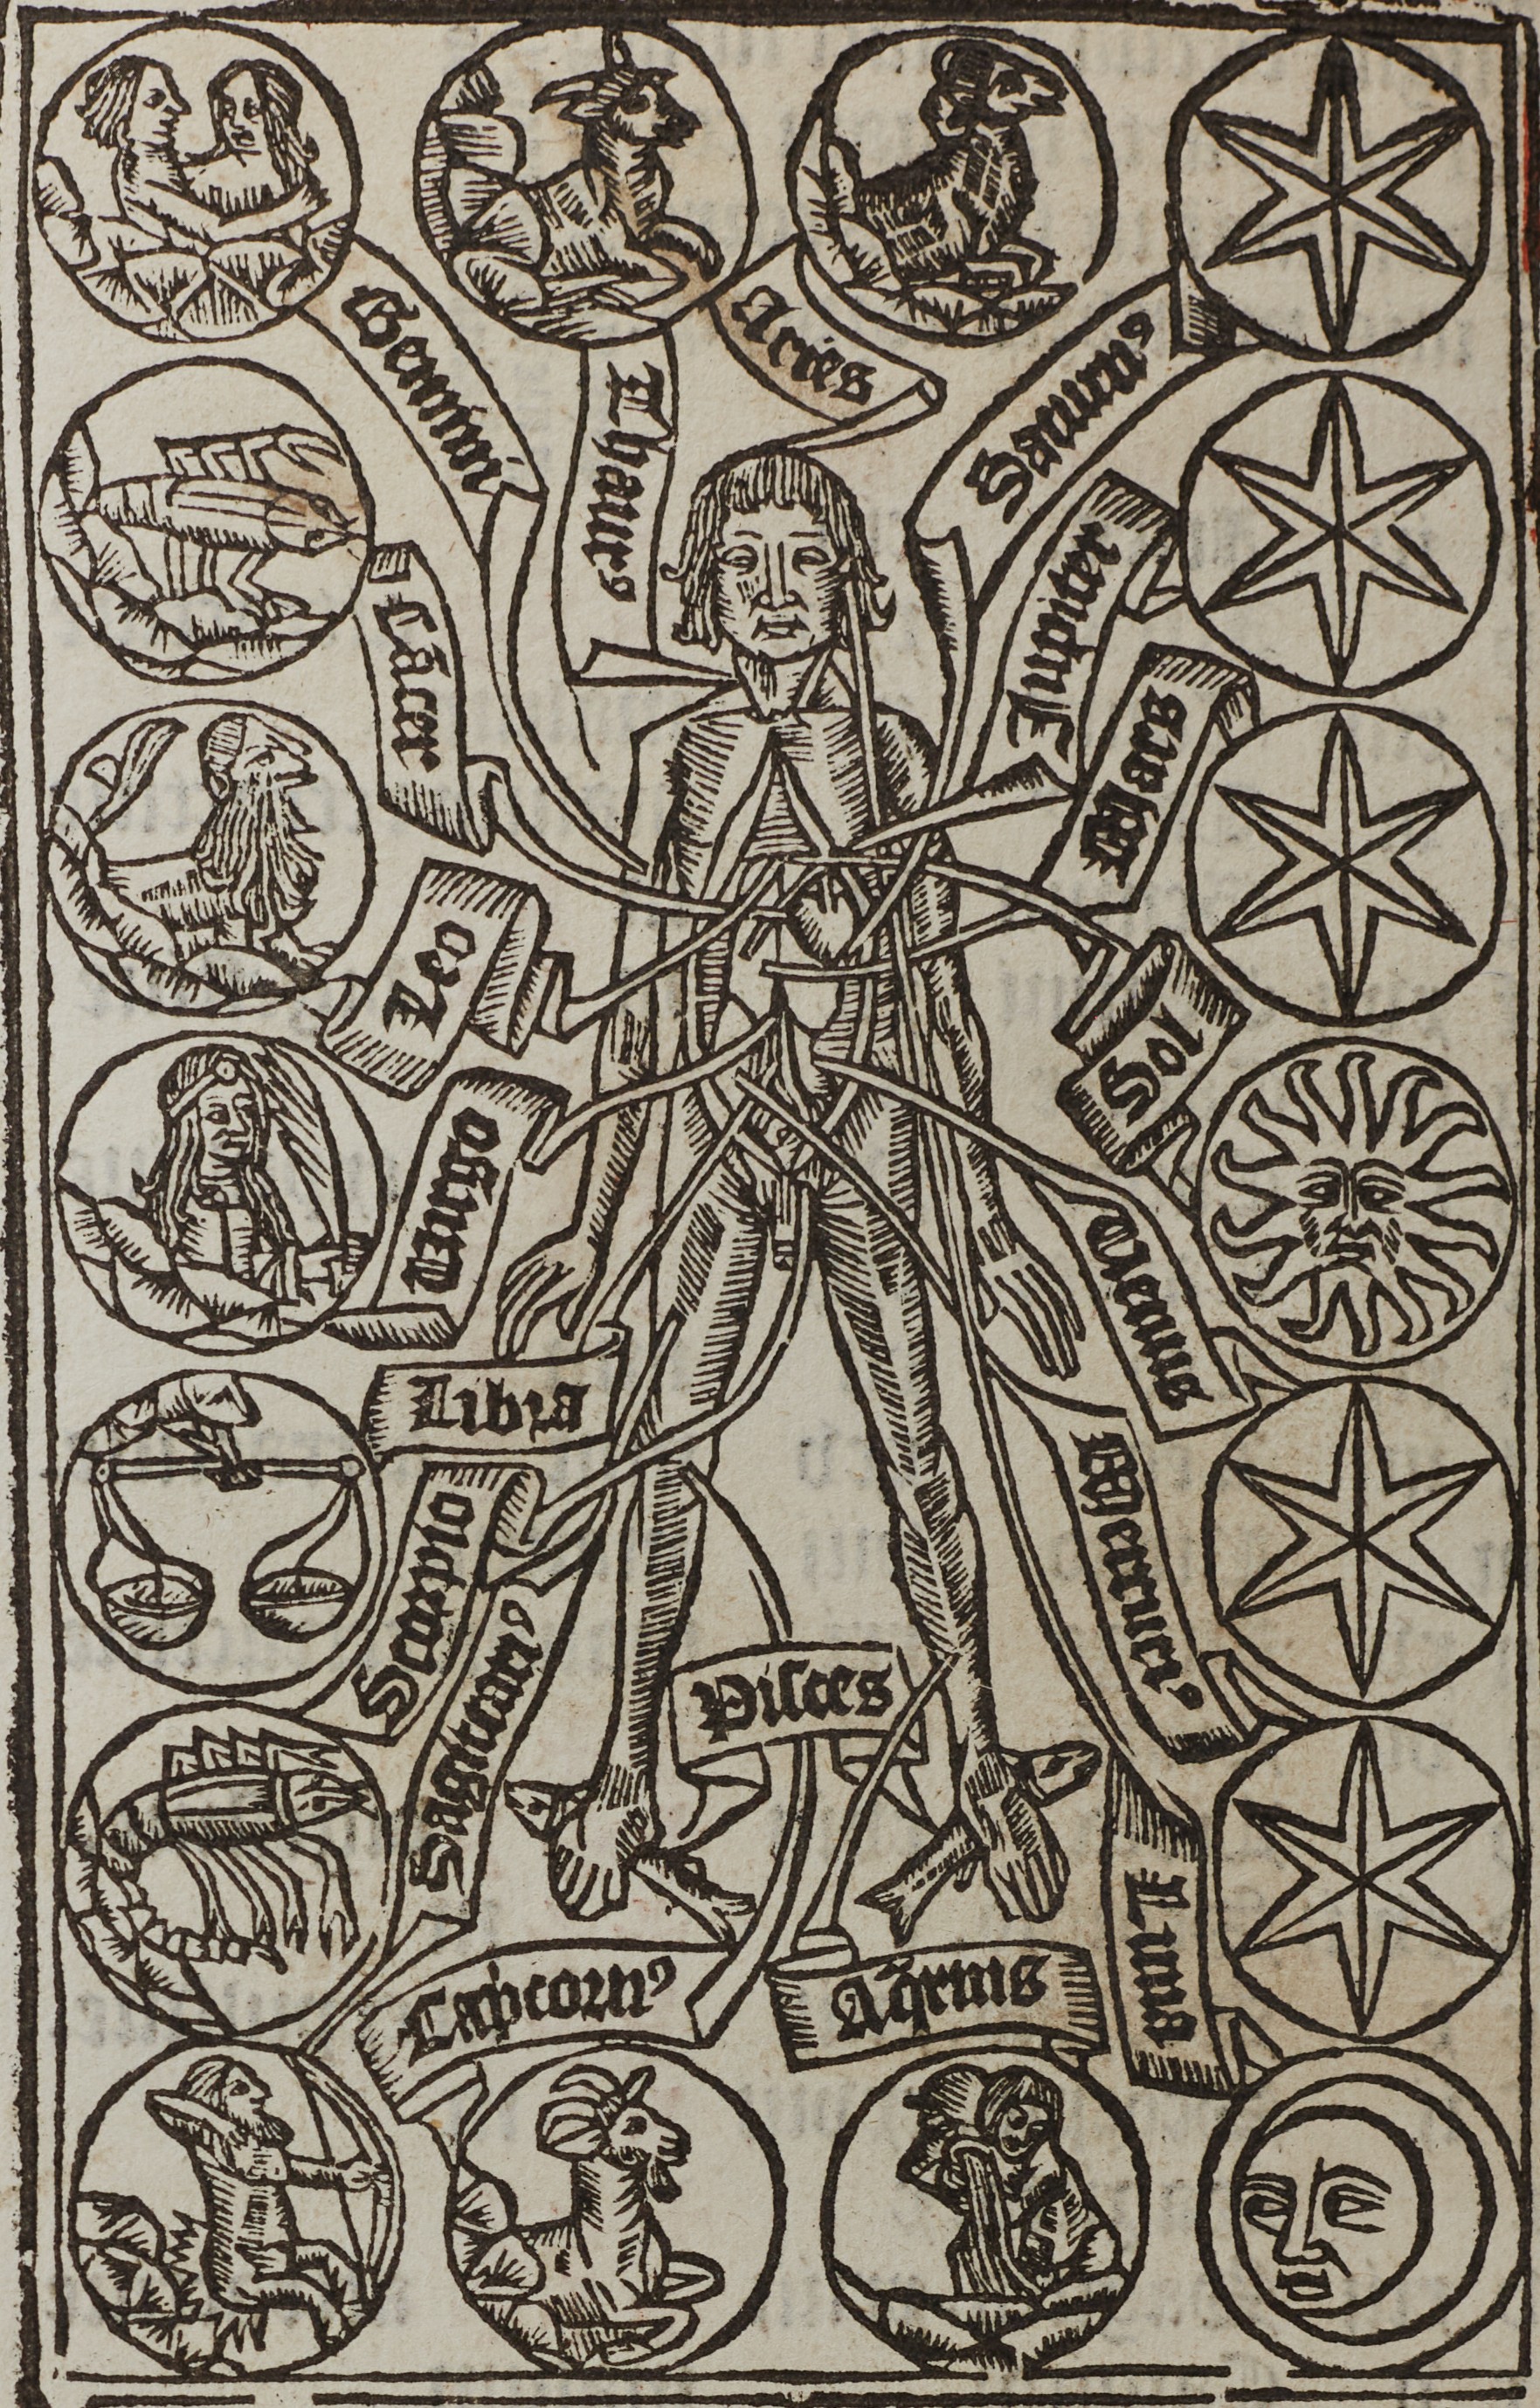 Gemini
Thaurꝰ
Aries
Saturnꝰ
Jupiter
Cãcer
Mars
Leo
Sol
Virgo
Venus
Libra
Mercuriꝰ
Scorpio
Sagittariꝰ
Pisces
Luna
Capicornꝰ
Aq̃rius